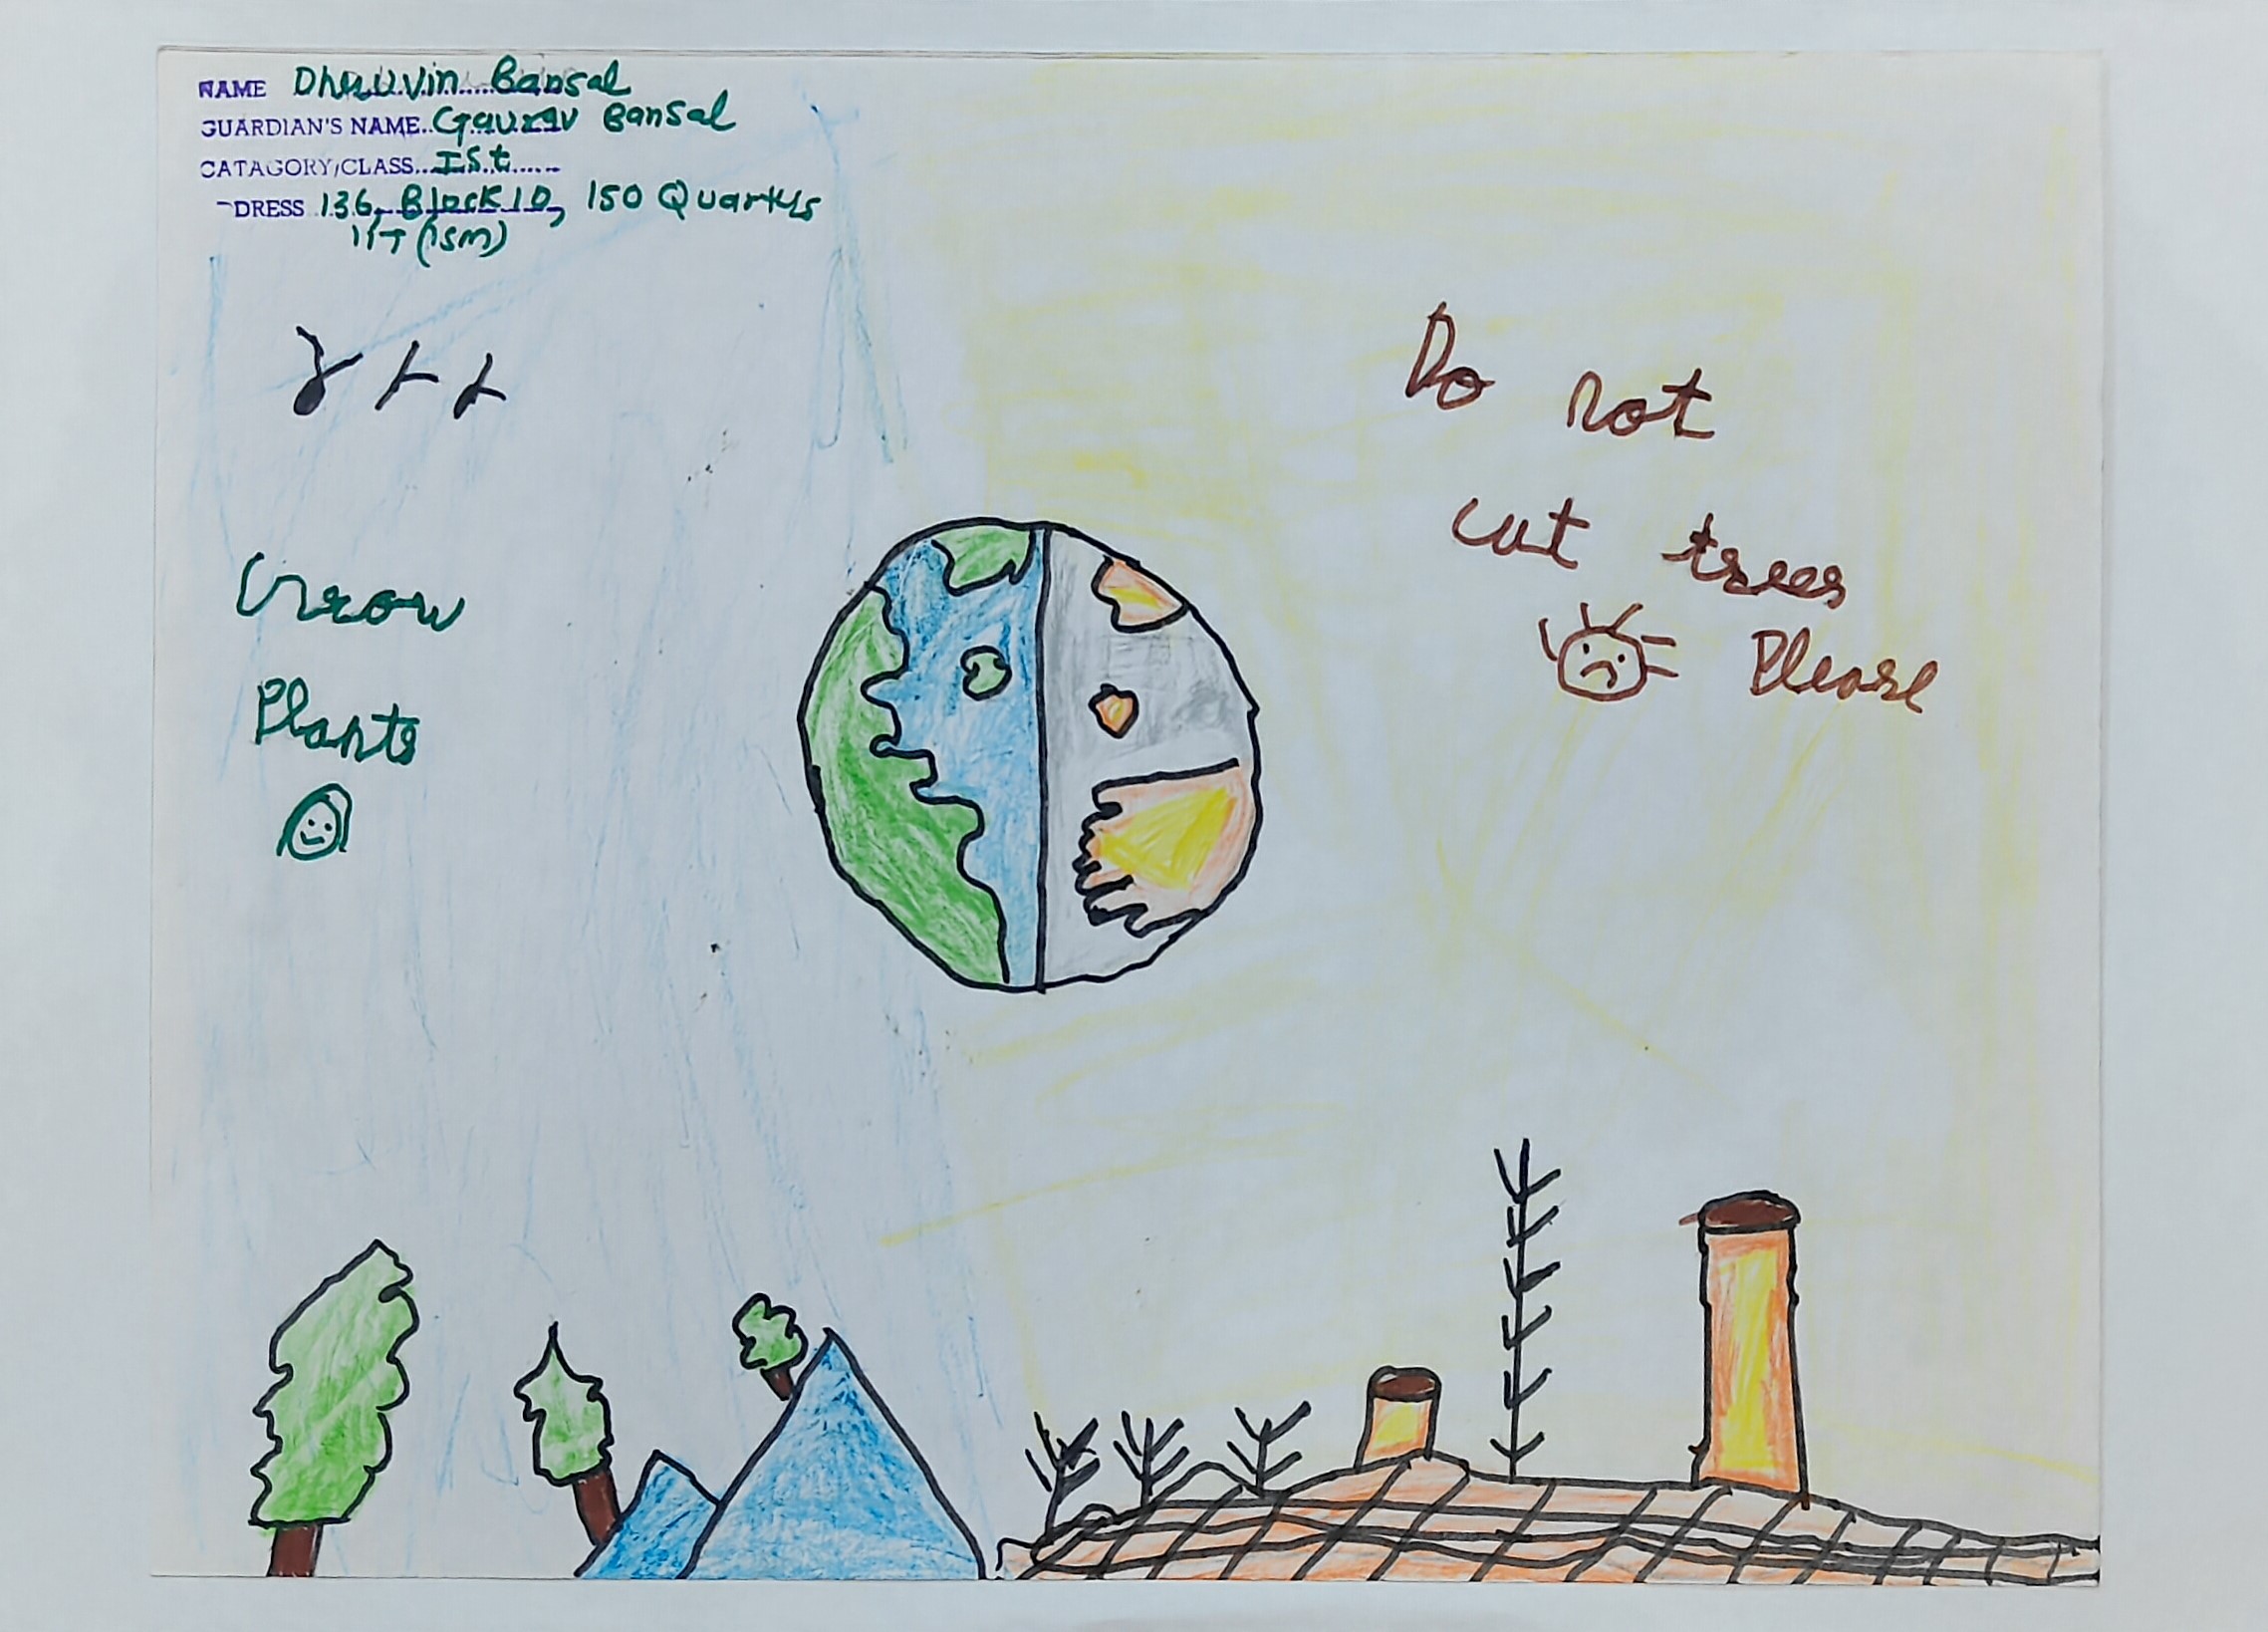 NAME Dhruvin Bansal
GUARDIAN'S NAME..Gaurav Bansal
CATAGORY/CLASS...Ist......
DRESS 136, Block 10, 150 Quarters
IIT (ISM)
Do not
cut trees
Please
Grow
Plants